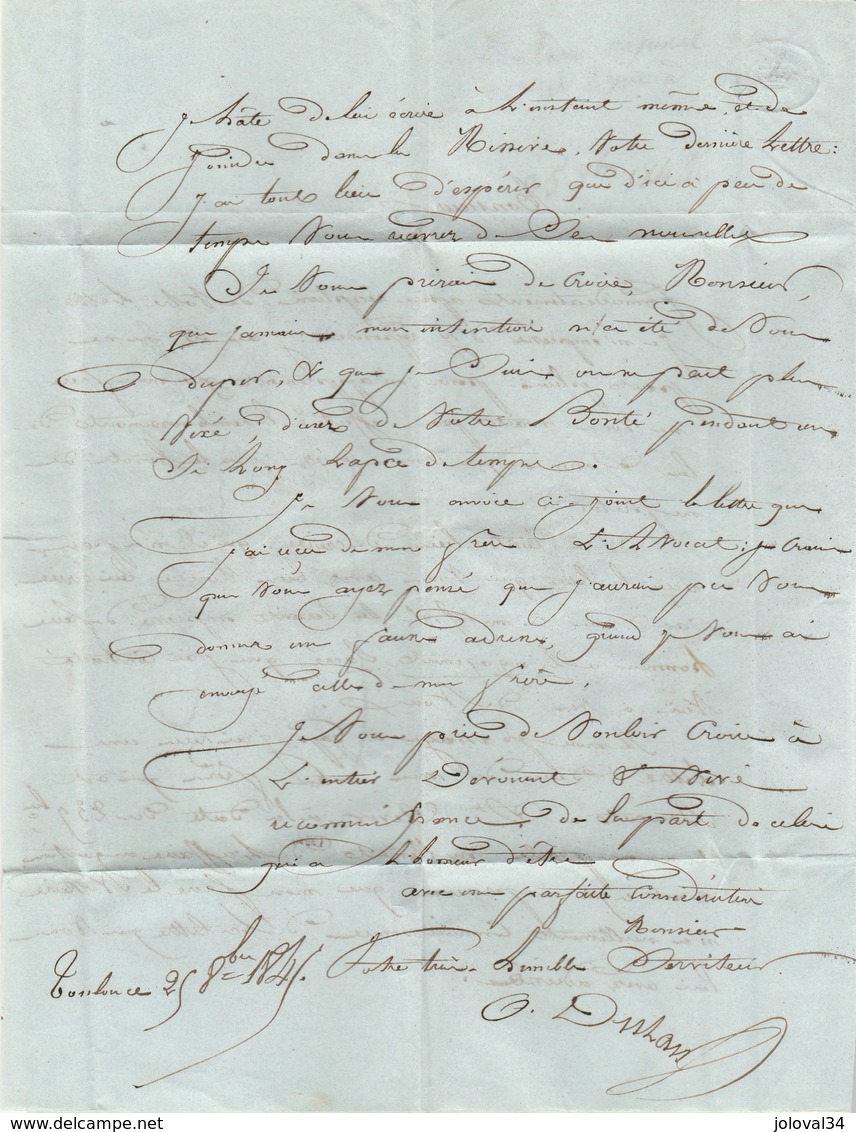 Je hâte de lui écrire à L'instant même, et de
Joindre dans la Missive, Votre dernière Lettre:
J'ai tout lieu d'espérer que d'ici à peu de
temps Vous recevrez de Ses nouvelles
Je Vous prirais de Croire, Monsieur,
que Jamais mon intention n'a été de Vous
duper, & que Je Suis on ne peut plus
Vexé, d'user de Votre Bonté pendant un
Si Long Lapce de temps.
Je Vous envoie ci-joint la lettre que
J'ai reçu de mon frère L'Avocat; Je Crains
que Vous ayez pensé que J'aurais pu Vous
donner une fausse adresse, quand Je Vous ai
envoyé celle de mon frère.
Je Vous prie de Vouloir Croire à
L'entier Dévouement & Vive
reconnaissance de la part de celui
qui a L'honneur d'être
avec une parfaite Considération
Monsieur
Votre très humble Serviteur
Toulouse 25 8bre 1845.
joloval34
delcampe.net